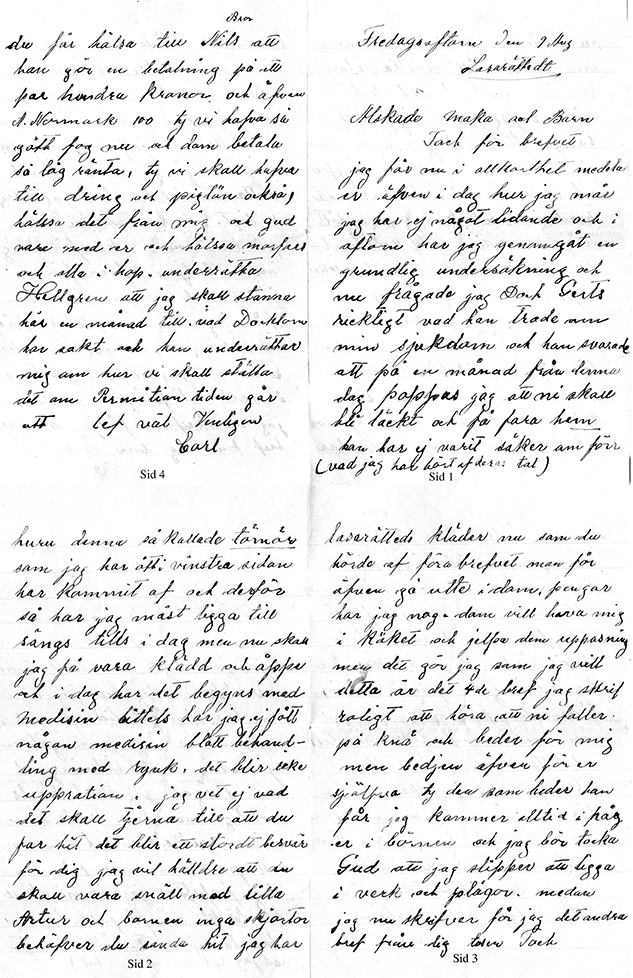 Fredagsaftom Den 9 Aug
Lasarättedt
Älskade Maka och Barn
Tack för brefvet
jag får nu i allkorthet medela
er äfven i dag hur jag mår
jag har ej något lidande och i
aftom har jag genumgåt en
grundlig undersäkning och
nu frågade jag Dock Gerts
ricktigt vad han trode om
min sjukdom och han svarade
att på en månad från denna
dag hoppas jag att ni skall
bli läckt och få fara hem
han har ej varit säker om förr
(vad jag har hört af deras tal)
Sid 1
huru denna så kallade tömör
som jag har åtti vinstra sidan
har kommit af och derför
så har jag måst ligga till
sängs tills i dag men nu skall
jag få vara klädd och äppe
och i dag har det begyns med
Medisin hittels har jag ej fått
någan medisin blått behand-
ling med rynk, det blir icke
uppration. jag vet ej vad
det skall tjärna till att du
far hit det blir ett stordt besvär
för dig jag vil hälldre att du
skall vara snäll med lilla
Artur och barnen inga skjortor
behäfver du sända hit jag har
Sid 2
lasarätteds kläder nu som du
hörde af förra brefvet man för
äfven gå utte i dam, pengar
har jag nog. dam vill hava mig
i käket och jelpa dem uppasning
men det gör jag som jag vill
detta är det 4de bref jag skrif
roligt att höra att ni faller
på knä och beder för mig
men bedjen äfven för er
sjölfva ty den som beder han
får jag kammer alltid i håg
er i bönnen och jag bör tacka
Gud att jag slipper att ligga
i verk och plågor. medan
jag nu skrifver får jag det andra
bref från dig Tack
Sid 3
Bror
du får hälsa till Nils att
han gör en betalning på ett
par hundra kronor och äfven
A. Norrmark 100 ty vi hafva så
gått fog nu at dam betala
så låg ränta, ty vi skall hafva
till dräng och piglön också,
hällsa det från mig och gud
vare med er och hälsa morfars
och alla i hop. underrätta
Hellgren att jag skall stanna
här en månad till. vad Docktorn
har sakt och han underrättar
mig om hur vi skall stälta
det om Permition tiden går
utt lef väl Venligen
Carl
Sid 4